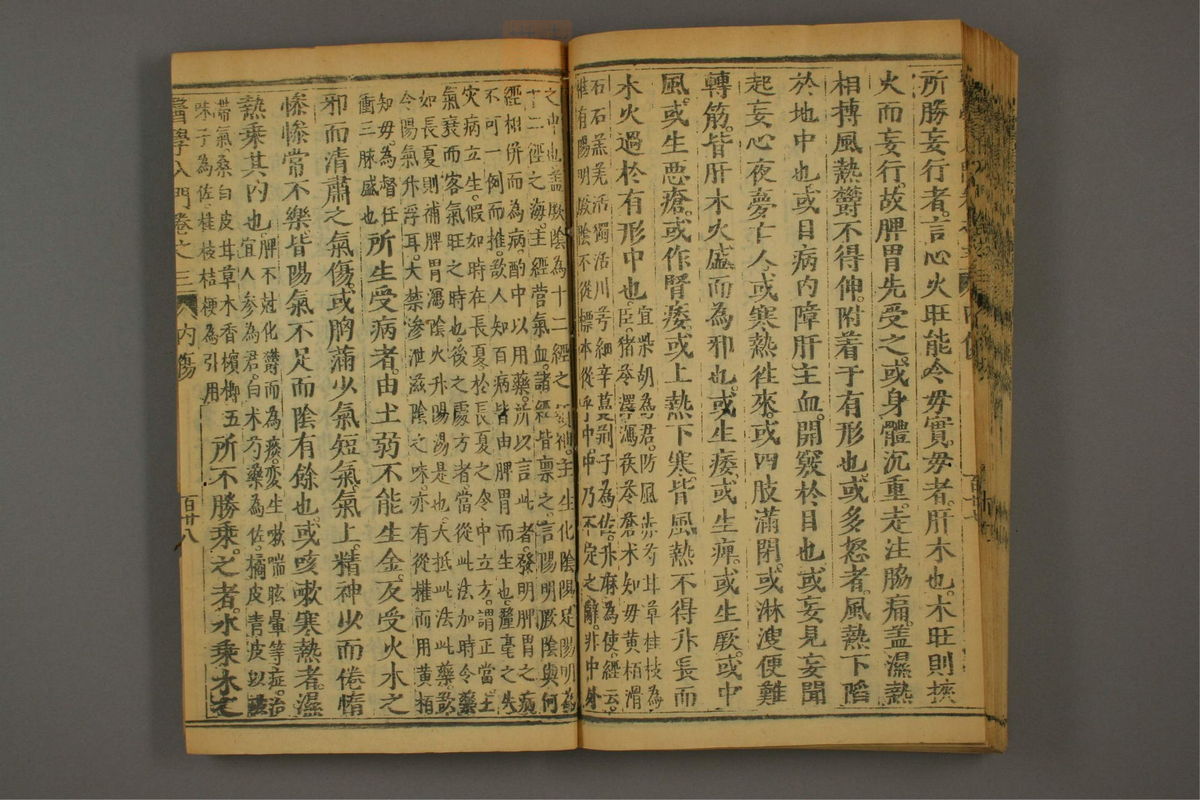 所勝妄行者言心火旺能令母實母者肝木也木旺則挾
火而妄行故脾胃先受之或身體沉重走注脇痛蓋濕熱
相搏風熱鬱不得伸附着于有形也或多怒者風熱下陷
於地中也或目病內障肝主血開竅於目也或妄見妄聞
起妄心夜夢亡人或寒熱徃來或四肢滿閉或淋溲便難
轉筋皆肝木火盛而為邪也或生痿或生痺或生厥或中
風或生惡瘡或作腎痿或上熱下寒皆風熱不得升長而
木火過於有形中也
宜柴胡為君防風赤芍甘草桂枝為
臣猪苓澤瀉茯苓蒼术知母黃栢滑
石石羔羌活獨活川芎細辛蔓荊子為佐升麻為使經云
惟有陽明厥陰不從標本從乎中中乃不定之辭非中外
之中也蓋厥陰為十二經之領神主生化陰陽足陽明為
十二經之海主經營氣血諸經皆禀之言陽明厥陰與何
經相併而為病酌中以用藥所以言此者發明脾胃之病
不可一例而推欲人知百病皆由脾胃而生也釐毫之失
灾病立生假如時在長夏於長夏之令中立方謂正當主
氣衰而客氣旺之時也後之處方者當從此法加時令藥
如長夏則補脾胃瀉陰火升陽湯是也大抵此法此藥欲
令陽氣升浮耳大禁滲泄滋陰之味亦有從權而用黃栢
知母為督任
衝三脉盛也
所生受病者由土弱不能生金反受火水之
邪而清肅之氣傷或胸滿少氣短氣氣上精神少而倦惰
慘慘常不樂皆陽氣不足而陰有餘也或咳嗽寒熱者濕
熱乘其內也
脾不尅化鬱而為痰變生嗽喘眩暈等症治
宜人參為君白术芍藥為佐橘皮青皮以
帶氣桑白皮甘草木香檳榔五
味子為佐桂枝桔梗為引用
所不勝乘之者水乘木之
醫學入門卷之三 內傷 百廿八